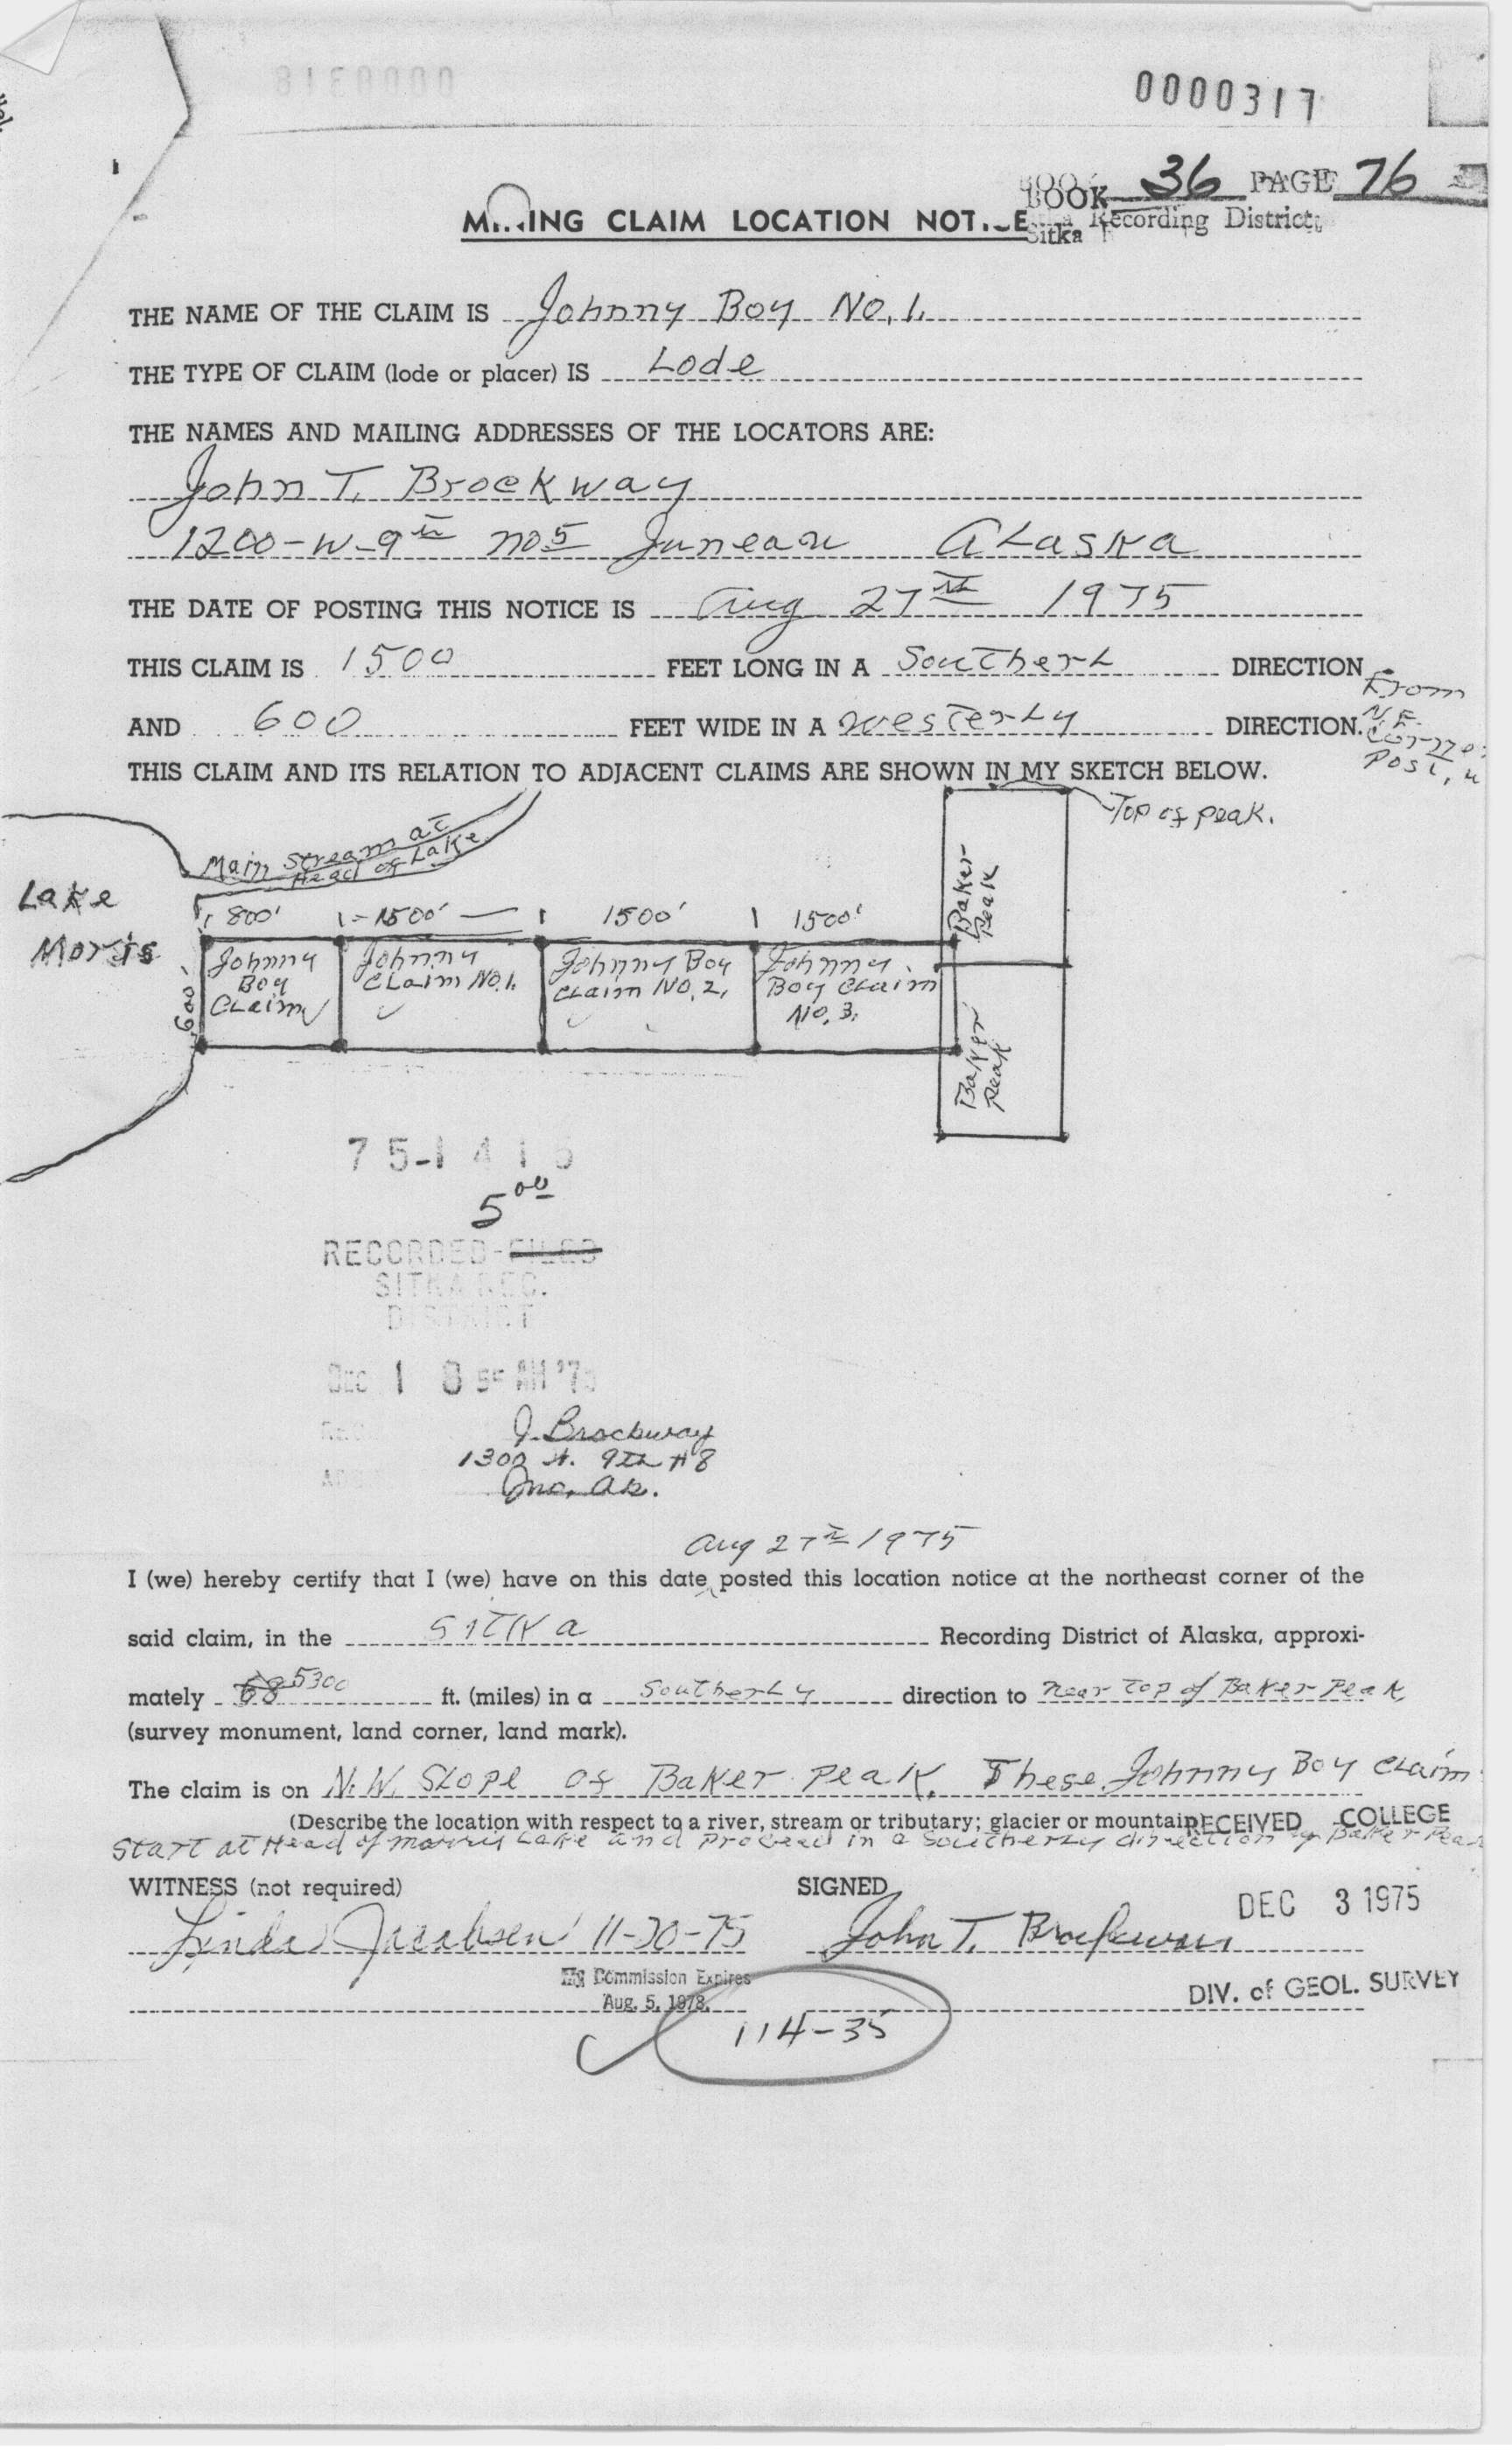 0000318
0000317
BOOK 36 PAGE 76
Sitka Recording District
MINING CLAIM LOCATION NOTICE
THE NAME OF THE CLAIM IS Johnny Boy No. 1.
THE TYPE OF CLAIM (lode or placer) IS Lode
THE NAMES AND MAILING ADDRESSES OF THE LOCATORS ARE:
John T. Brockway
1200-W-9th no 5 Juneau ALaska
THE DATE OF POSTING THIS NOTICE IS Aug 27th 1975
THIS CLAIM IS 1500 FEET LONG IN A SoutherL DIRECTION
From
AND 600 FEET WIDE IN A westerLy DIRECTION.
N.E.
Corner
Post,
THIS CLAIM AND ITS RELATION TO ADJACENT CLAIMS ARE SHOWN IN MY SKETCH BELOW.
Top of peak.
Main Stream at
Head of Lake
Lake
Morris
800' 1500' 1500' 1500'
600'
Johnny
Boy
CLaim
Johnny
CLaim No. 1.
Johnny Boy
CLaim NO. 2,
Johnny
Boy CLaim
No. 3.
Baker
Peak
Baker
Peak
75-1415
5 00
RECORDED-FILED
SITKA REC.
DISTRICT
DEC 1 8 55 AM '75
J. Brockway
1300 W. 9th #8
Jno, Ak.
Aug 27th 1975
I (we) hereby certify that I (we) have on this date posted this location notice at the northeast corner of the
said claim, in the Sitka Recording District of Alaska, approxi-
mately 5300 ft. (miles) in a SoutherLy direction to near Top of Baker Peak,
(survey monument, land corner, land mark).
The claim is on N.W. SLope of Baker Peak. These Johnny Boy CLaim
(Describe the location with respect to a river, stream or tributary; glacier or mountain
RECEIVED COLLEGE
Start at Head of Morris Lake and Proceed in a SoutherLy direction Baker Peak
WITNESS (not required) SIGNED
DEC 3 1975
Linda Jacobsen 11-20-75 John T. Brockway
My Commission Expires
Aug. 5, 1978.
DIV. of GEOL. SURVEY
114-35